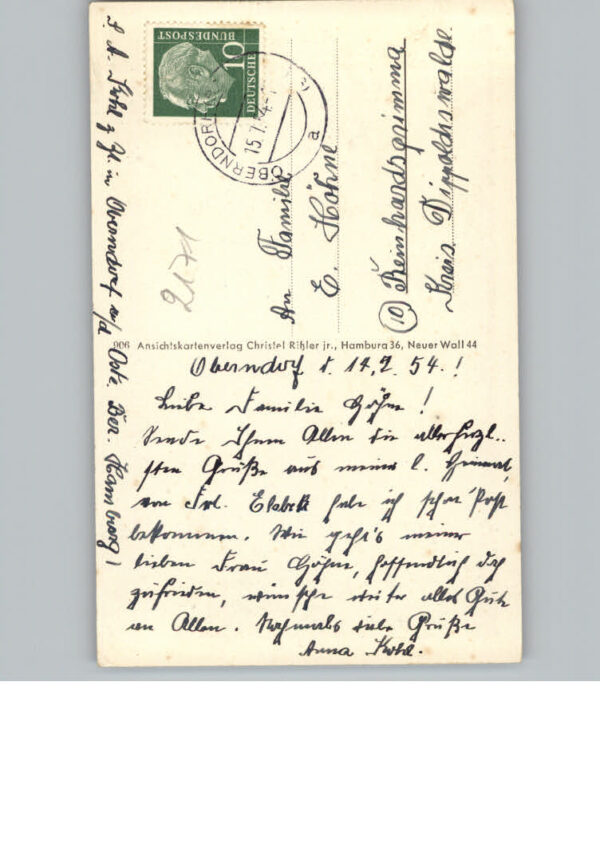 DEUTSCHE
BUNDESPOST
10
OBERNDORF
15.7.54
a
An Familie
E. Höhne
(10) Reinhardsgrimma
Kreis Dippoldiswalde.
2171
A. Kohl z. Zt. in Oberndorf a/d Oste Bez. Hamburg!
906 Ansichtskartenverlag Christel Rißler jr., Hamburg 36, Neuer Wall 44
Oberndorf d. 14.7.54.!
Liebe Familie Höhne!
Sende Ihnen Allen die allerherzl..
sten Grüße aus meiner l. Heimat,
von Frl. habe ich schon Post
bekommen. Wie geht's meiner
lieben Frau Höhne, hoffendlich doch
zufrieden, wünsche weiter alles Gute
an Allen. Nochmals viele Grüße
Anna Kohl.